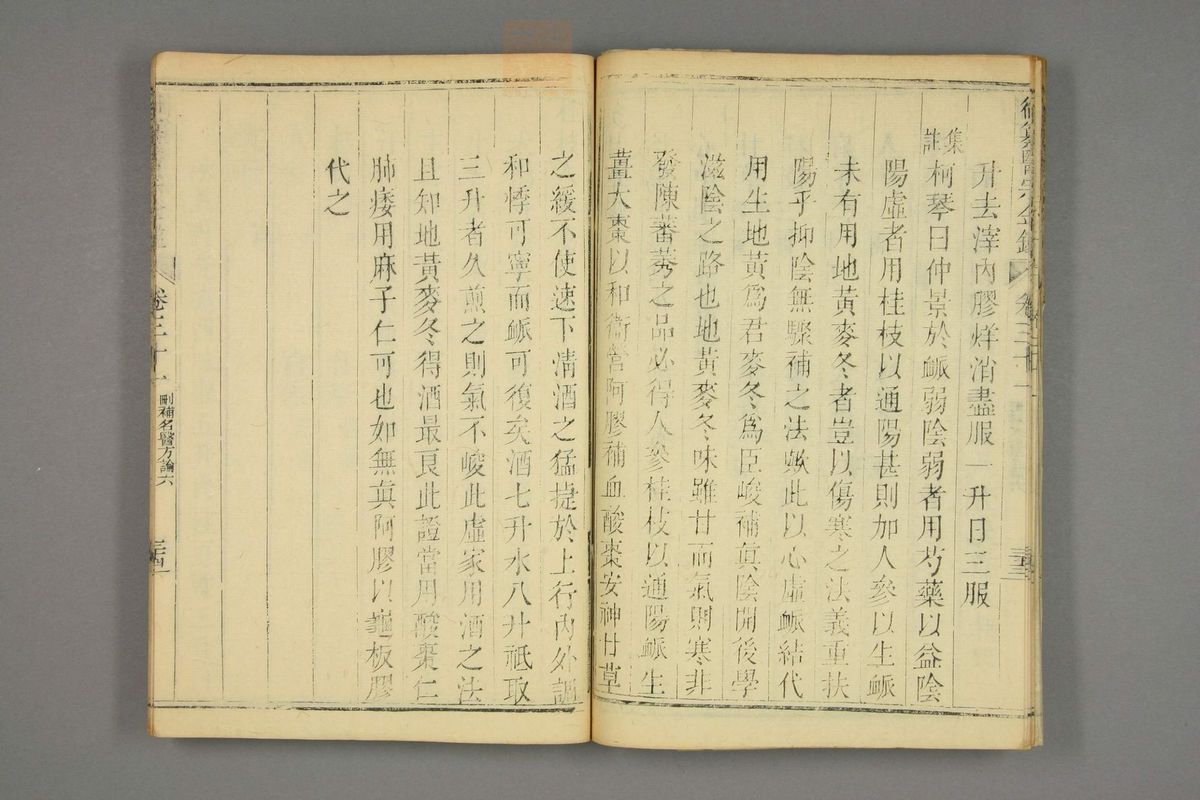 御纂醫宗金鑑
卷三十一
三十三
升去滓內膠烊消盡服一升日三服
集註
柯琴曰仲景於脈弱陰弱者用芍藥以益陰
陽虛者用桂枝以通陽甚則加人參以生脈
未有用地黃麥冬者豈以傷寒之法義重扶
陽乎抑陰無驟補之法歟此以心虛脈結代
用生地黃爲君麥冬爲臣峻補眞陰開後學
滋陰之路也地黃麥冬味雖甘而氣則寒非
發陳蕃莠之品必得人參桂枝以通陽脈生
薑大棗以和衞營阿膠補血酸棗安神甘草
之緩不使速下淸酒之猛捷於上行內外調
和悸可寧而脈可復矣酒七升水八升祗取
三升者久煎之則氣不峻此虛家用酒之法
且知地黃麥冬得酒最良此證當用酸棗仁
肺痿用麻子仁可也如無眞阿膠以龜板膠
代之
卷三十一
刪補名醫方論六
三十四